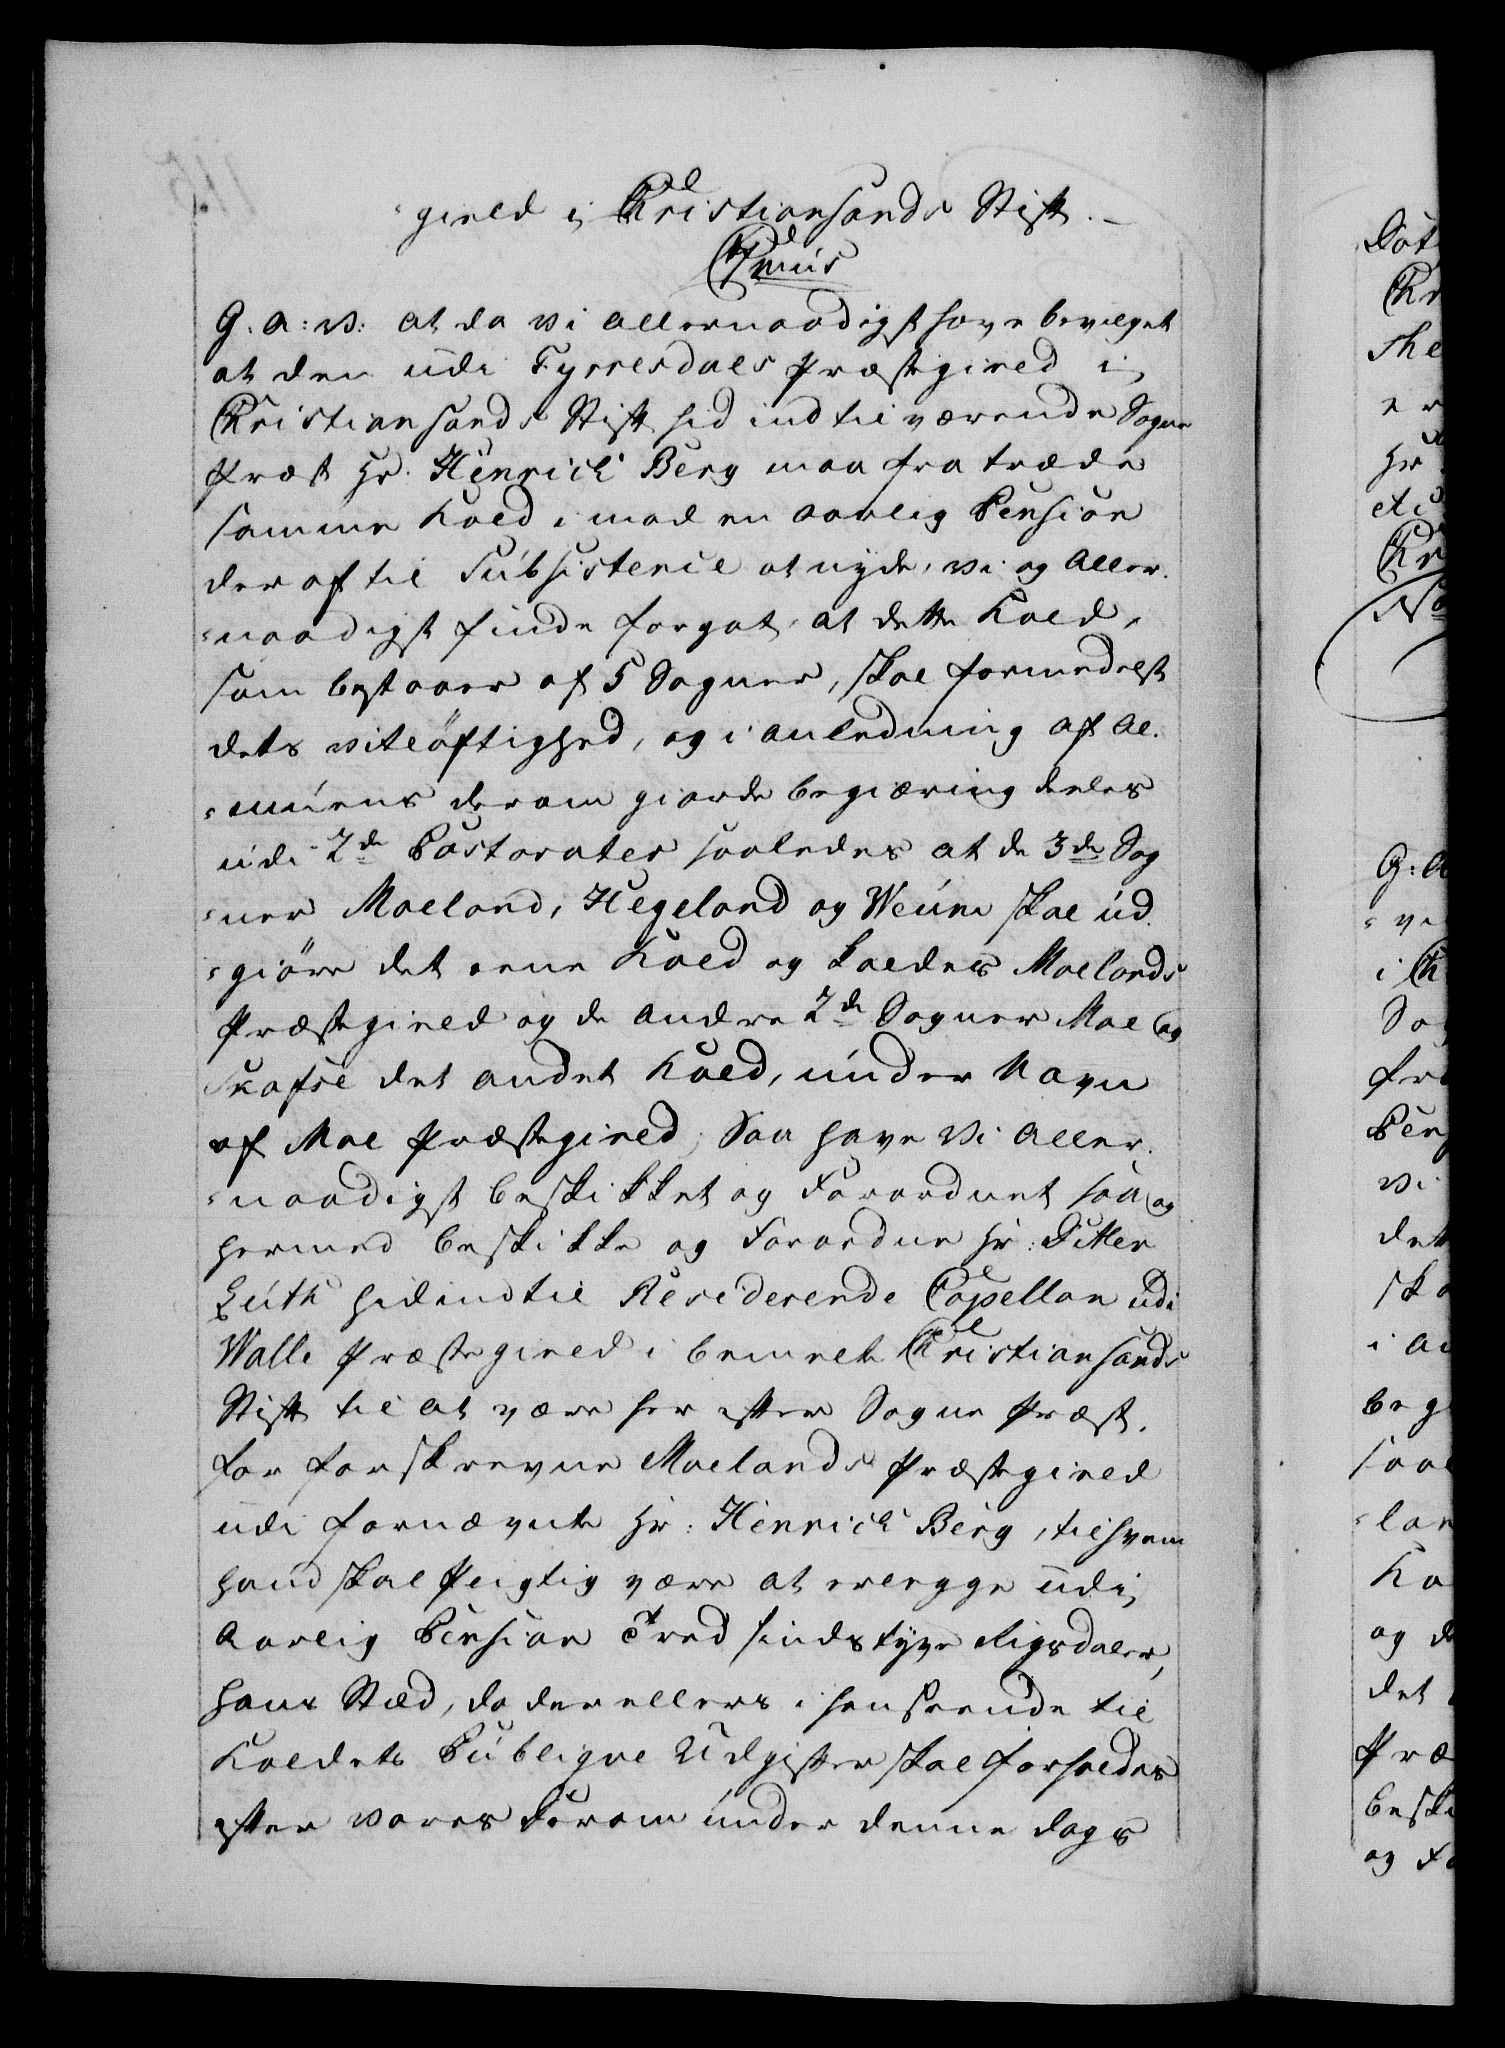 -gield i Christiansands Stift.
Cþmus
G. A: V: at da Vi allernaadigst have bevilget
at den udi Tyrresdals Præstegield i
Christiansands Stift hid indtil værende Sogne
Præst Hr: Henrich Berg maa fra træde
samme Kald imod en aarlig Pension
der af til Subsistence at nyde, Vi og Aller-
-naadigst finde forgot, at dette Kald,
som bestaaer af 5 Sogner, skal formedelst
dets vitløftighed, og i anledning af Al-
-muens derom giorde begiæring deeles
udi 2de Pastorater saaledes at de 3de Sog
-ner Moeland, Hegeland og Weum skal ud-
-giøre det eene Kald og kaldes Moelands
Præstegield og de andre 2de Sogner Moe og
Skafse det andet Kald, under Navn
af Moe Præstegield; Saa have Vi Aller-
-naadigst beskikket og Forordnet saa og
hermed beskikke og Forordne Hr: Ditlev
Leuth hidindtil Residerende Capellan udi
Walle Præstegield i bemelte Christiansands
Stift til at være her efter Sogne Præst
for forskrevne Moelands Præstegield
udi fornævnte Hr: Henrich Berg, til hvem
hand skal pligtig være at erlegge udi
Aarlig Pension Tred sinds tyve Rigsdaler,
hans Stæd, da der ellers i henseende til
Kaldets Publiqve Udgifter skal forholdes
efter vores derom under denne Dags